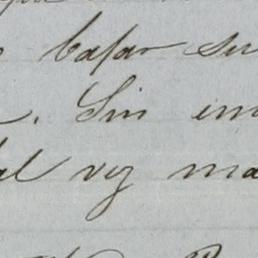 bajar su
. Sin em
al vez ma